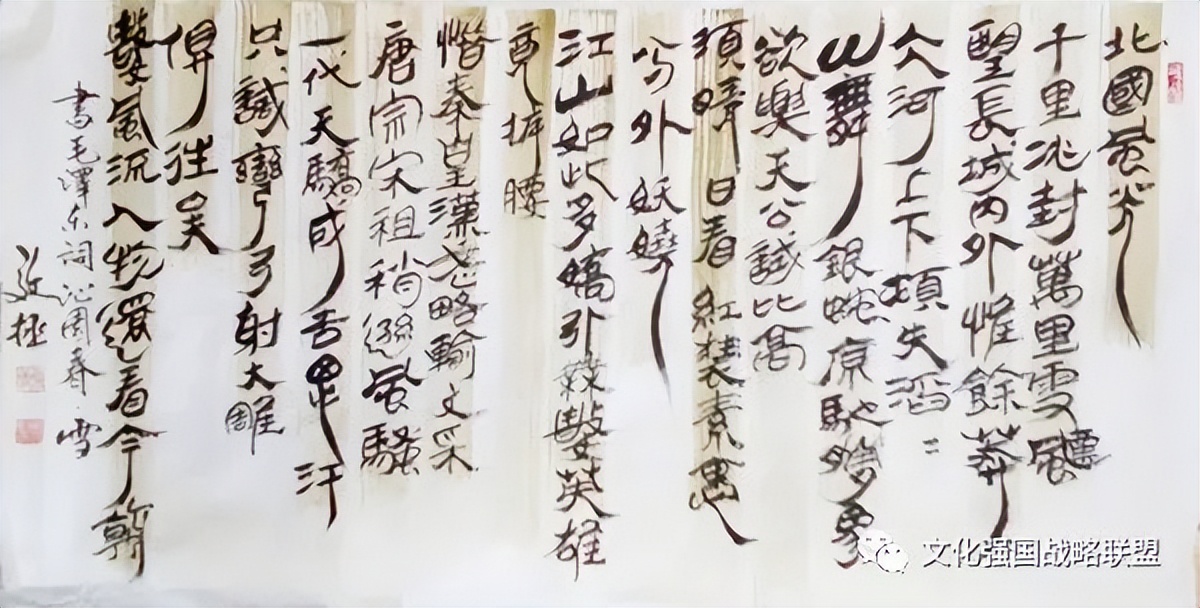 北國風光
千里冰封萬里雪飄
望長城內外惟餘莽
大河上下頓失滔〻
山舞銀蛇原馳蠟象
欲與天公試比高
須晴日看紅裝素裹
分外妖嬈
江山如此多嬌引無數英雄
竟折腰
惜秦皇漢武略輸文采
唐宗宋祖稍遜風騷
一代天驕成吉思汗
只識彎弓射大雕
俱往矣
數風流人物還看今朝
書毛澤东詞沁園春·雪
文化强国战略联盟